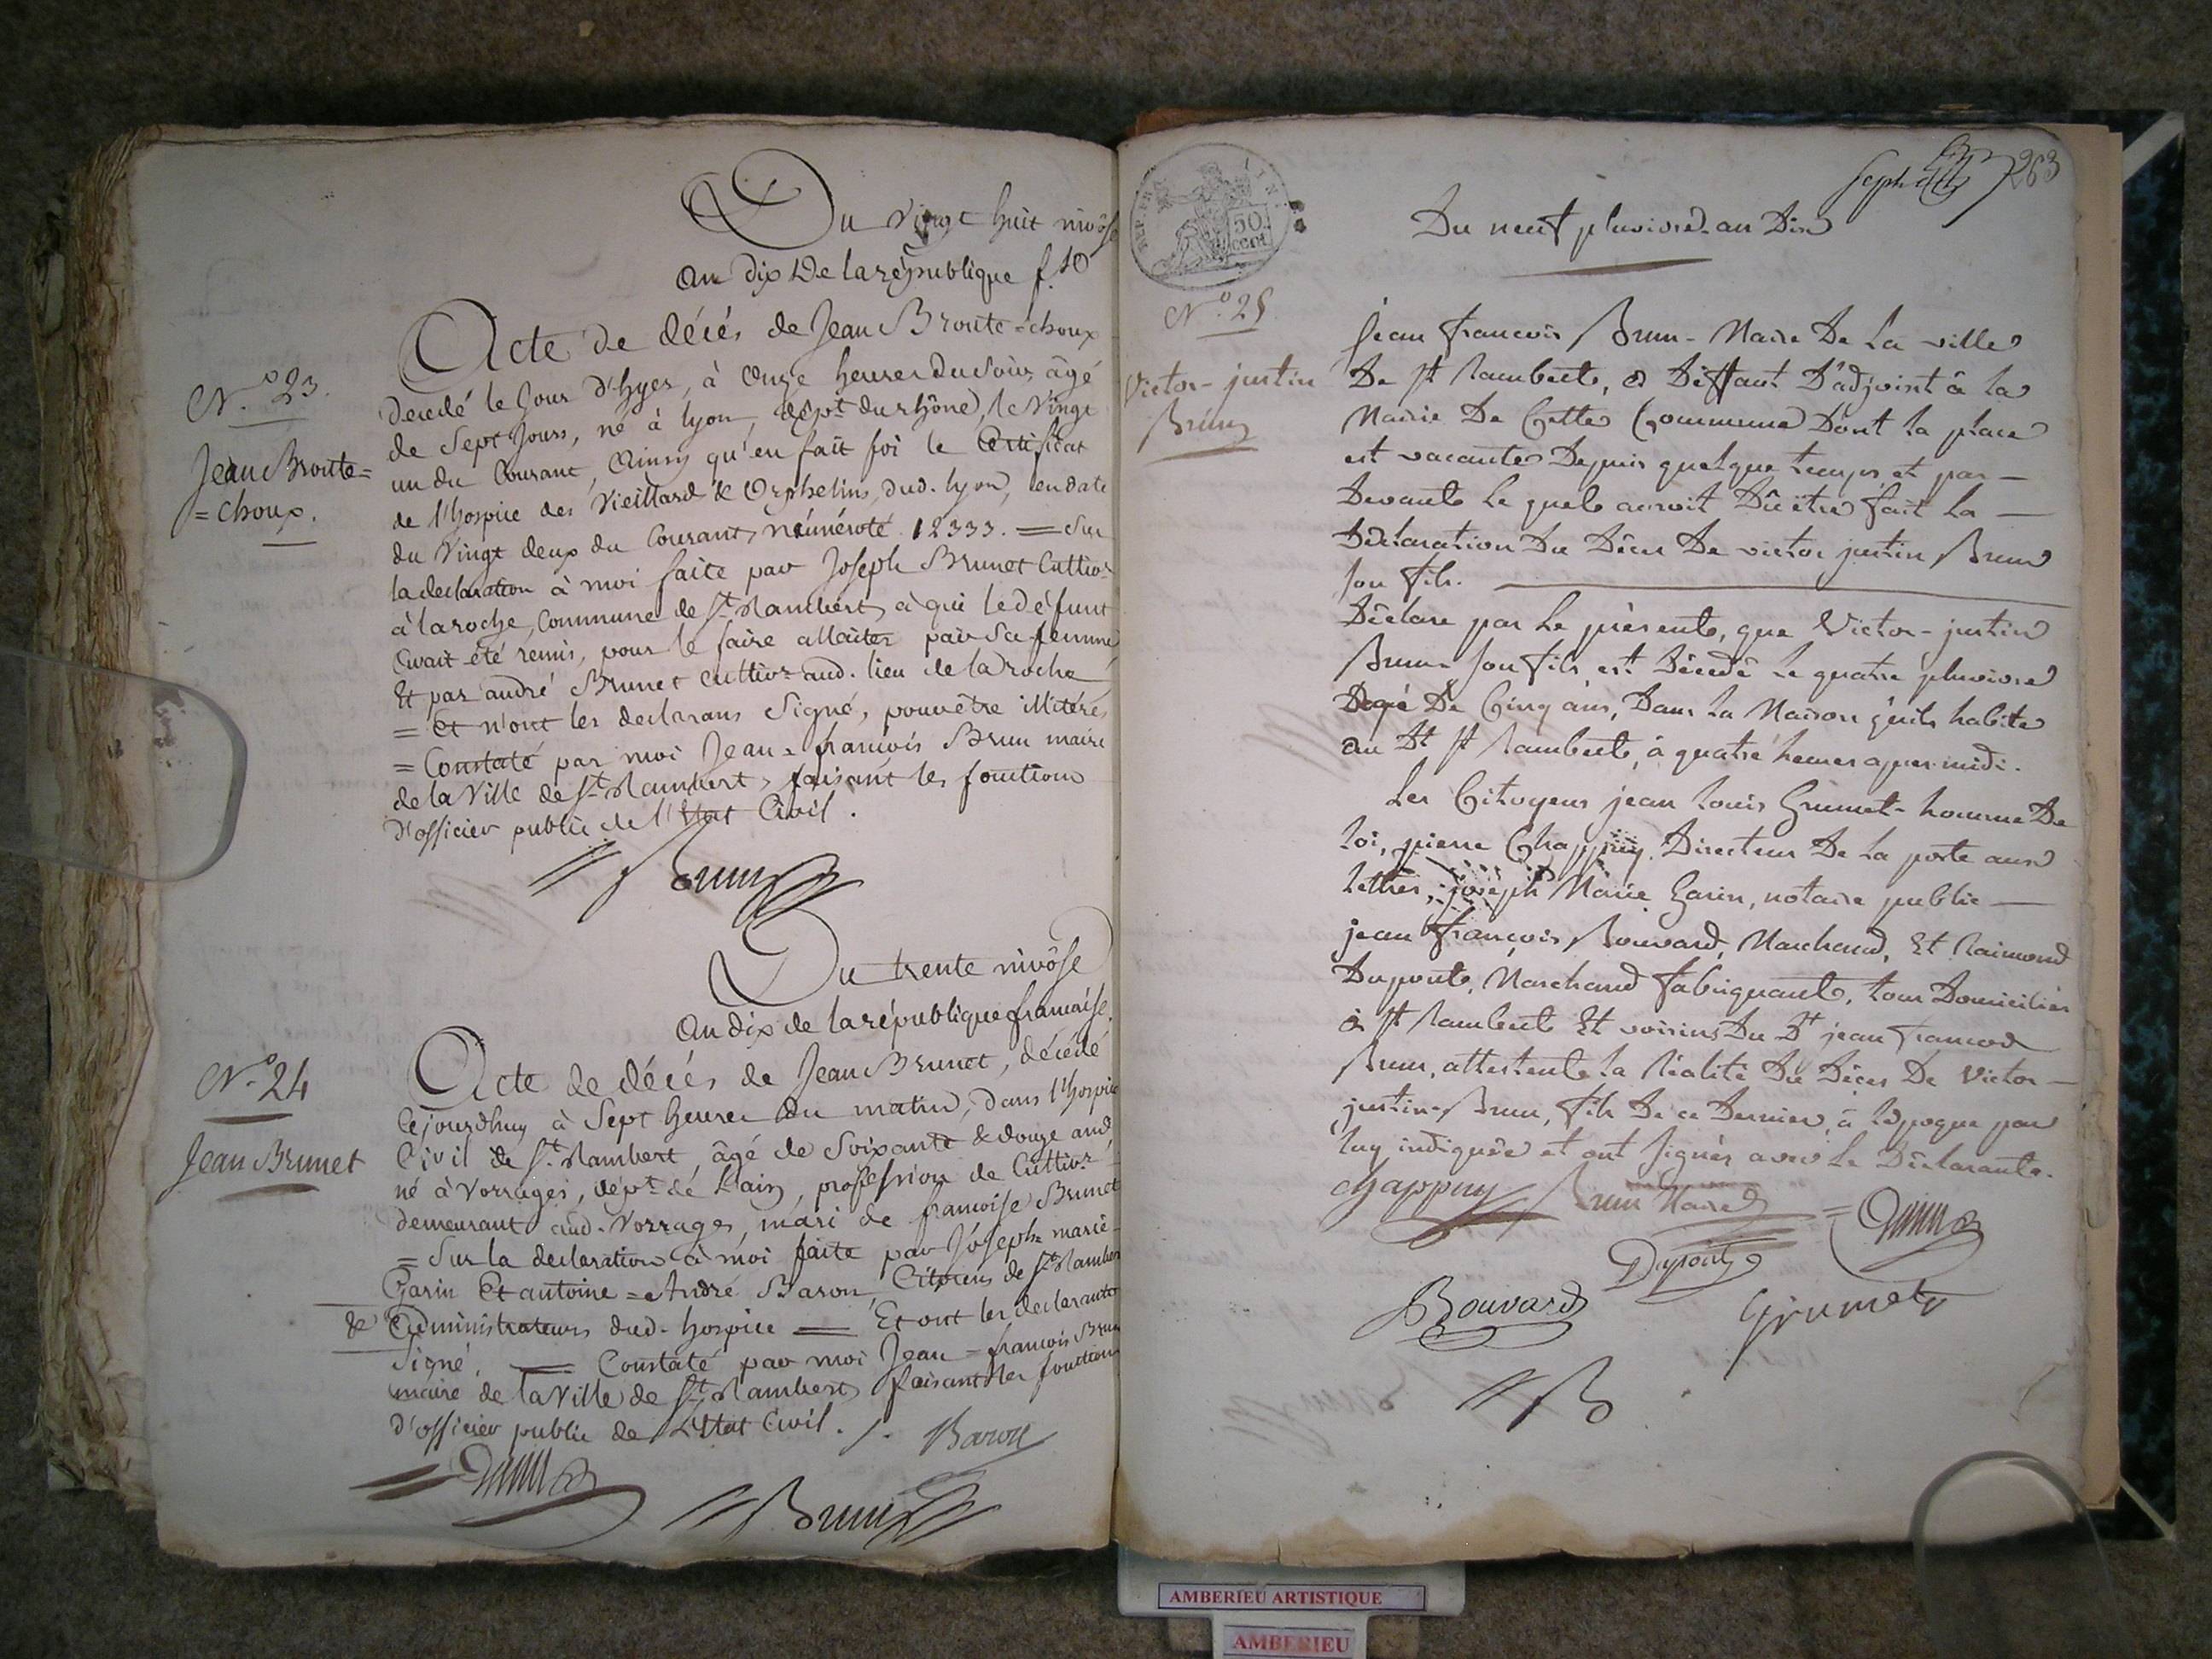 Du Vingt huit nivôse
An dix De la république f.se
Acte de décés de Jean Broute-choux
decedé le Jour d'hyer, à Onze heures du soir, âgé
de Sept Jours, né à lyon, dépt du rhône, le Vingt
un du Courant, Ainsy qu'en fait foi le Certificat
de l'hospice des Vieillard & Orphelins, dud. lyon, en date
du Vingt deux du Courant, numéroté 12333. = Sur
la declaration à moi faite par Joseph Brunet Cultivr
à la roche, Commune de St. Rambert, à qui le défunt
avait été remis, pour le faire allaiter par sa femme
Et par andré Brunet cultivr aud. lieu de la roche
= Et n'ont les declarans Signé, pour être illitérés
= Constaté par moi Jean-francois Brun maire
de la Ville de St. Rambert, faisant les fonctions
d'officier public de l'Etat Civil.
Brun
No. 23.
Jean Broute=
=choux.
Du trente nivôse
An dix de la république francaise.
Acte de décés de Jean Brunet, décédé
Cejourdhuy à Sept heures du matin, dans l'hospice
Civil de St. Rambert, âgé de Soixante & douze ans,
né à Vorrages, dépt. de L'ain, profession de Cultivr.
demeurant aud. Vorrages, mari de francoise Brunet
= Sur la declaration à moi faite par Joseph marie-
Garin Et antoine=André Baron, Citoiens de St. Rambert
& Administrateurs dud. hospice = Et ont les declarants
Signé. = Constaté par moi Jean=francois Brun
maire de la Ville de St. Rambert faisant les fonctions
d'officier public de L'Etat Civil. /. Baron
Brun
No. 24
Jean Brunet
263
REP. FRA.
50
CENT.
Du neuf pluviose an Dix
No. 25
Victor-justin
Brun
Jean francois Brun - Maire De La ville
De St Rambert, a Deffaut D'adjoint à la
Mairie De Cette Commune Dont la place
est vacante Depuis quelque temps, et par-
Devant Le quel auroit Dû être fait la
Déclaration Du Décès De victor justin Brun
son fils.
Déclare par Le présente, que Victor-justin
Brun son fils, est Décédé Le quatre pluviose
Agé De Cinq ans, Dans La Maison qu'ils habite
au Dt St Rambert, à quatre heures apres midi.
Les Citoyens jean Louis Grumet - homme De
loi, pierre Chappuy Directeur De La poste aux
lettres, joseph Marie Garin, notaire public
jean françois Bouvard, Marchand, Et Raimond
Dupont, Marchand fabriquant, tous Domiciliés
à St Rambert Et voisins Du Dt jean francois
Brun, attestent la Réalité Du Décès De Victor
justin-Brun, fils De ce Dernier, à lépoque par
luy indiquée et ont signés avec Le Déclarant.
Chappuy Brun Maire
Dupont
Bouvard Grumet
AMBERIEU ARTISTIQUE
AMBERIEU